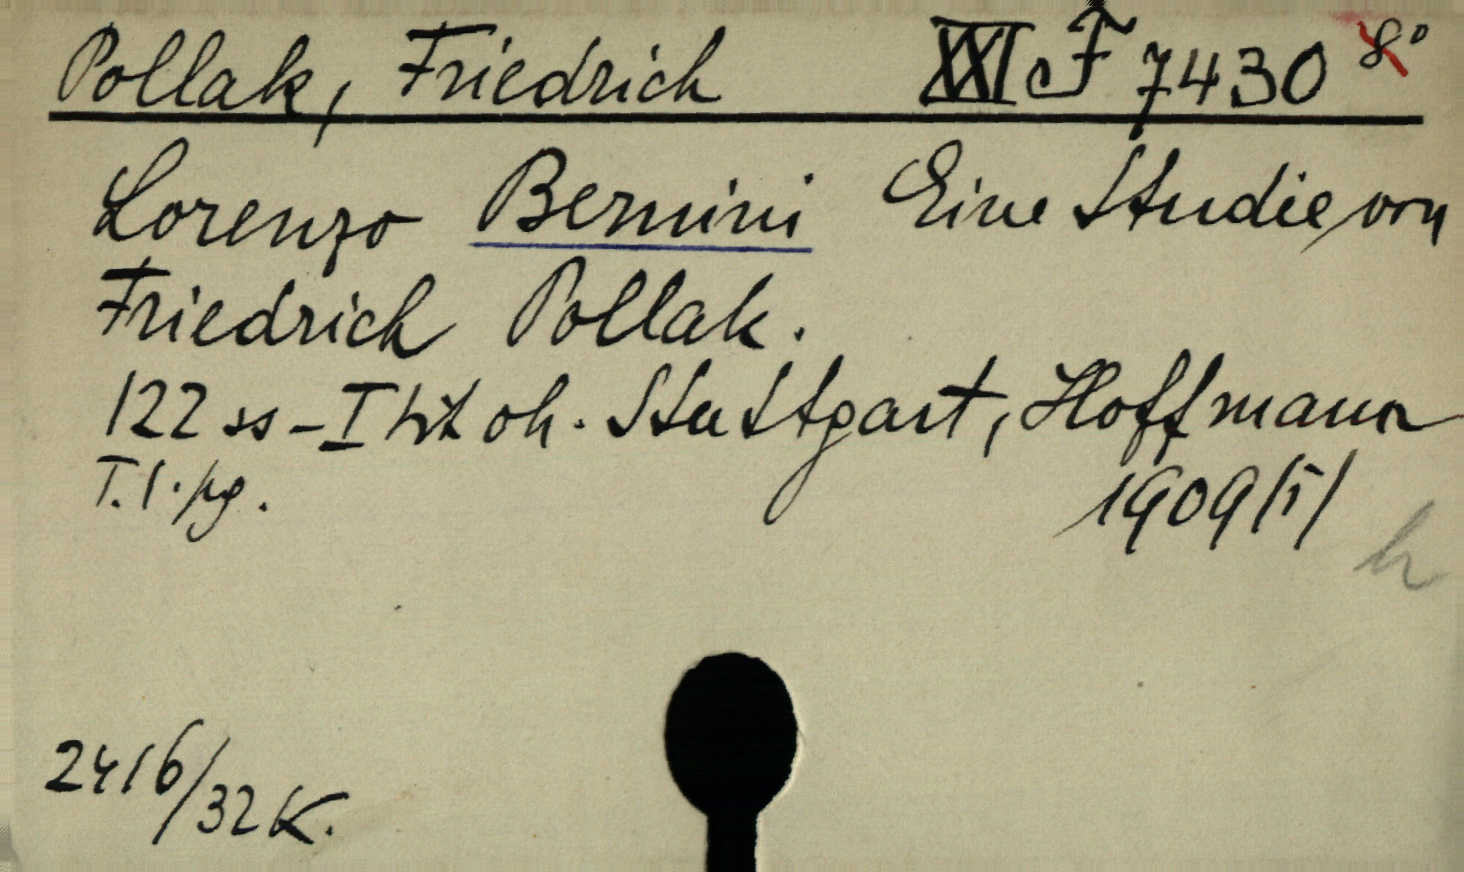 Pollak, Friedrich XXI F 7430 8°
Lorenzo Bernini Eine Studie von
Friedrich Pollak.
122 ss - I tit oh. Stuttgart, Hoffmann
T. l. pg. 1909/I/
h
2416/32 K.